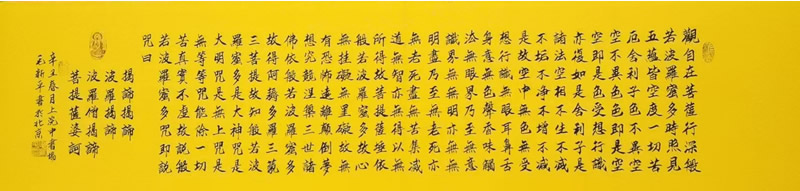 觀自在菩薩行深般
若波羅蜜多時照見
五蘊皆空度一切苦
厄舍利子色不異空
空不異色色即是空
空即是色受想行識
亦復如是舍利子是
諸法空相不生不滅
不垢不淨不增不減
是故空中無色無受
想行識無眼耳鼻舌
身意無色聲香味觸
法無眼界乃至無意
識界無無明亦無無
明盡乃至無老死亦
無老死盡無苦集滅
道無智亦無得以無
所得故菩提薩埵依
般若波羅蜜多故心
無挂礙無罣礙故無
有恐怖遠離顛倒夢
想究竟涅槃三世諸
佛依般若波羅蜜多
故得阿耨多羅三藐
三菩提故知般若波
羅蜜多是大神咒是
大明咒是無上咒是
無等等咒能除一切
苦真實不虛故說般
若波羅蜜多咒即說
咒曰
揭諦揭諦
波羅揭諦
波羅僧揭諦
菩提薩婆訶
辛丑春月上浣中書協
毛新平書於北京